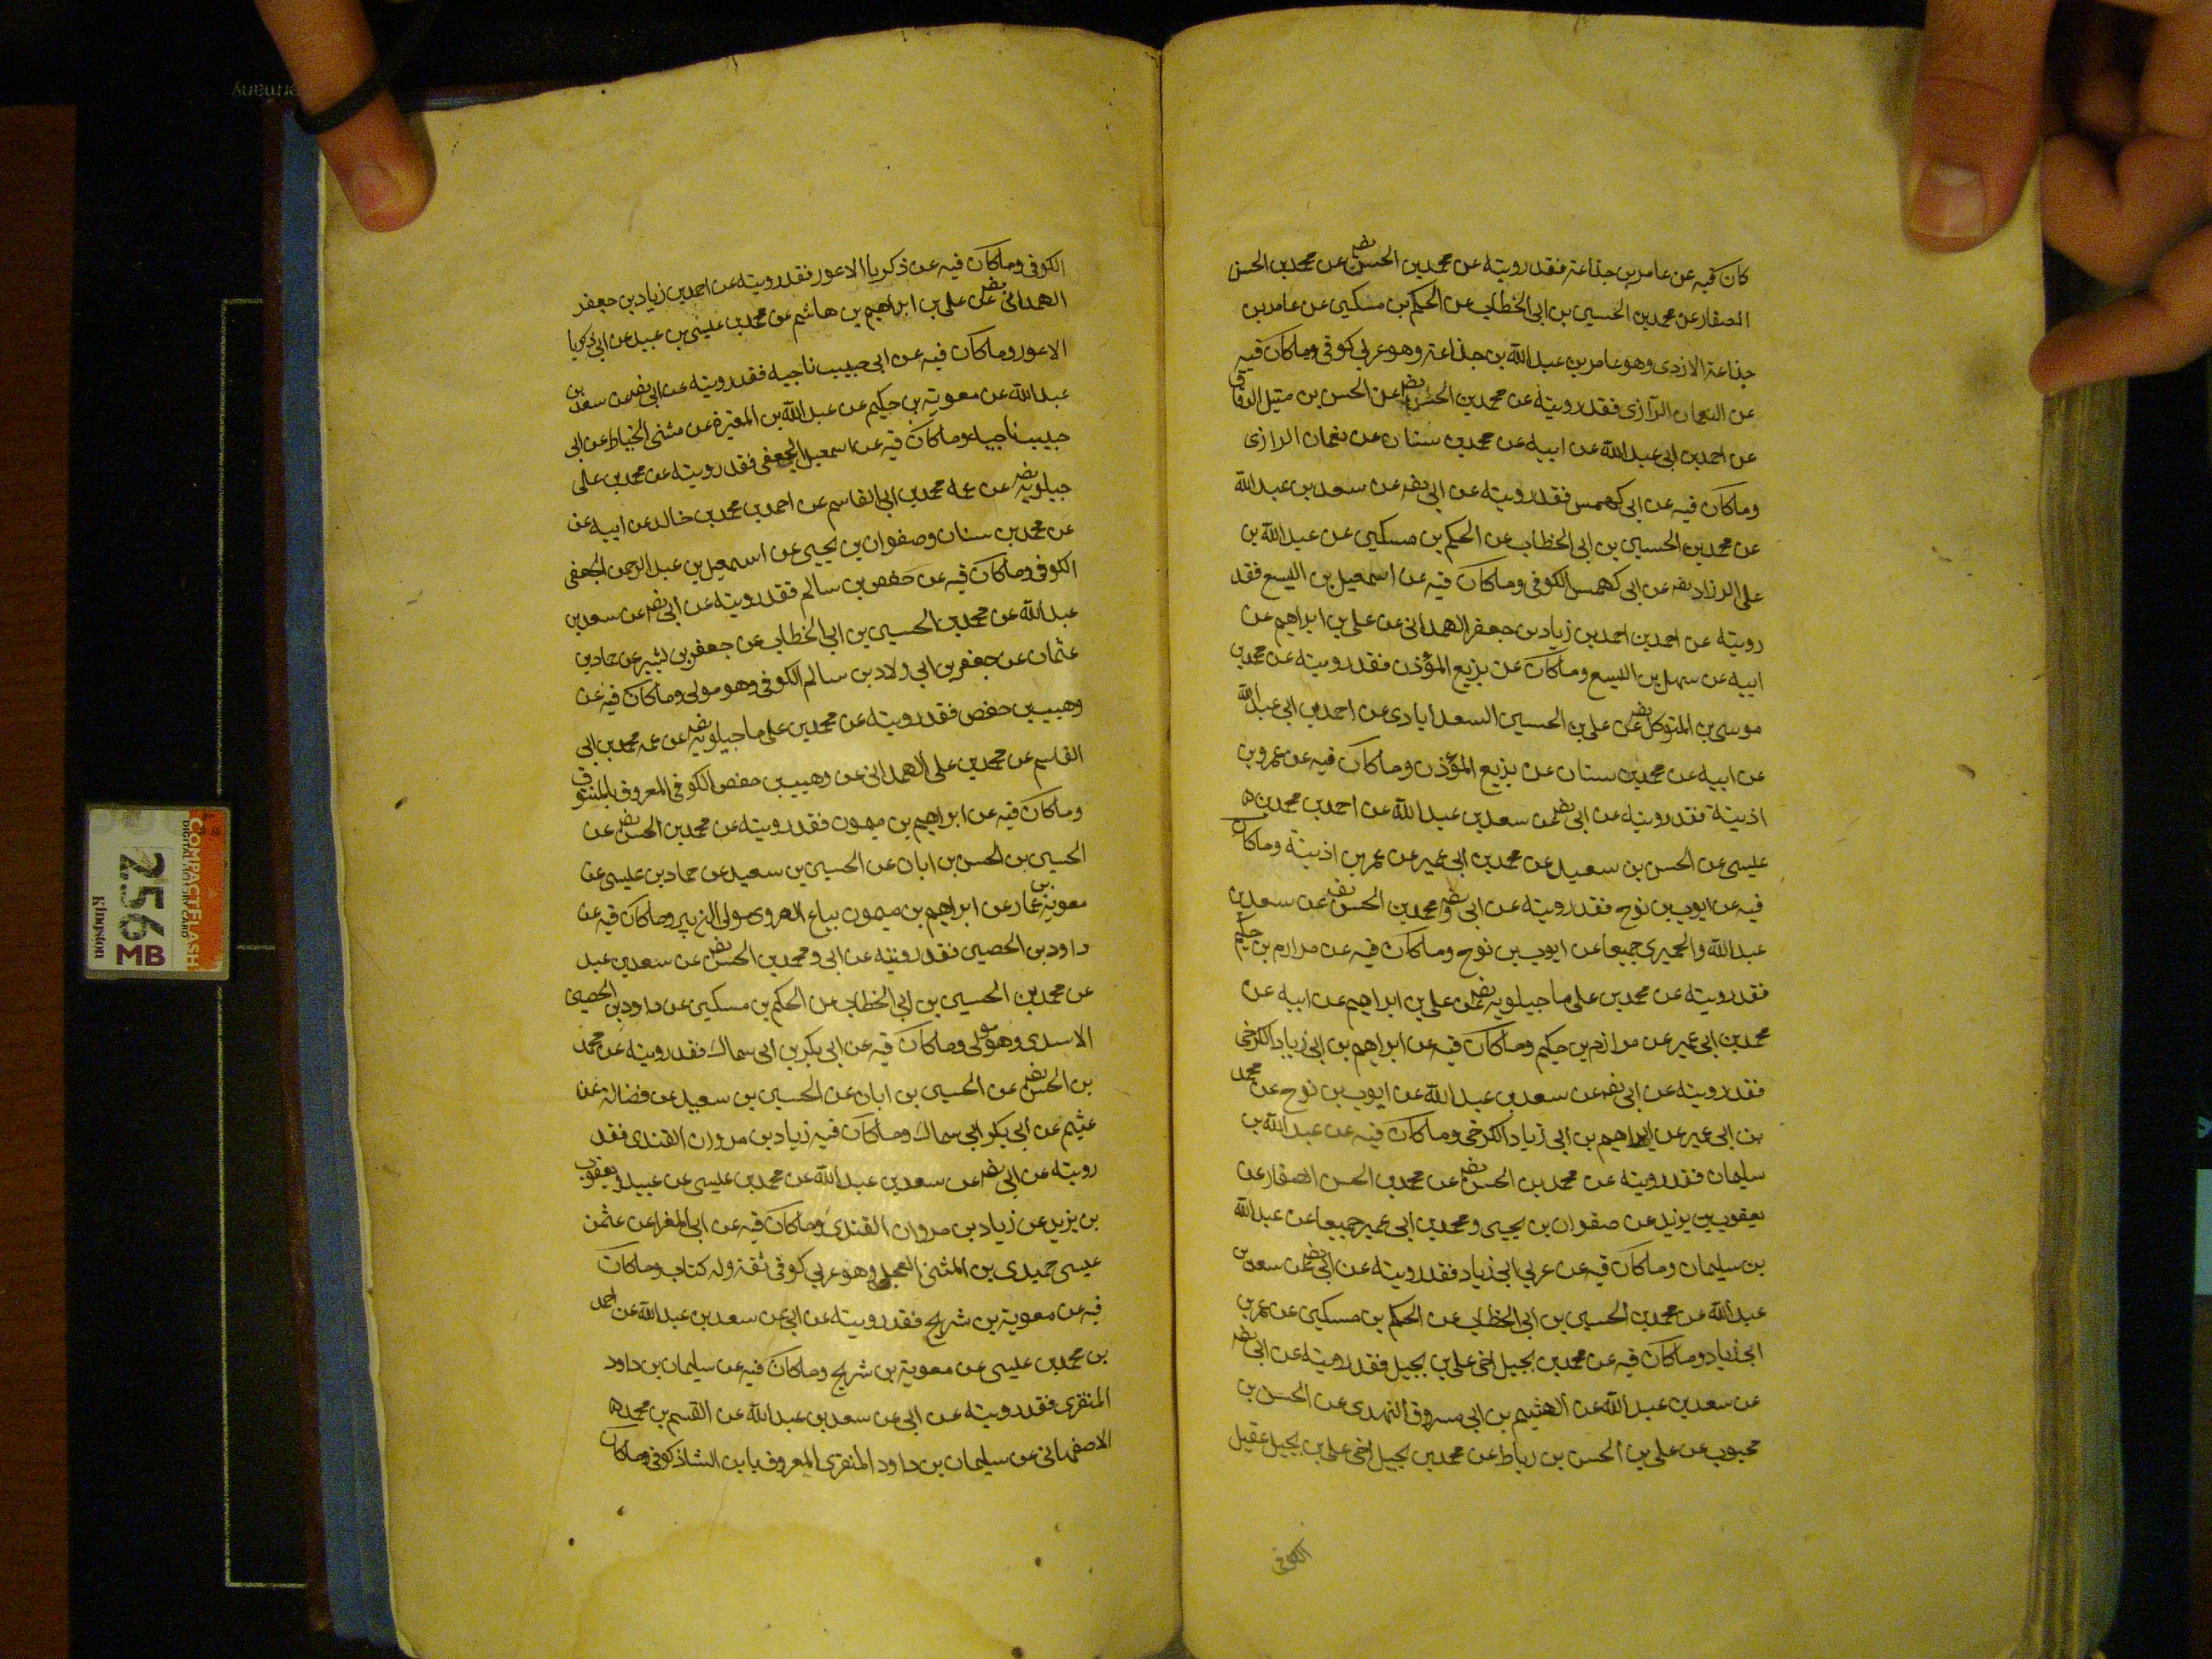 كان فيه عن عامر بن جذاعة فقد رويته عن محمد بن الحسن رضه عن محمد بن الحسن
الصفار عن محمد بن الحسين بن ابى الخطاب عن الحكم بن مسكين عن عامر بن
جذاعة الازدى وهو عامر بن عبد الله بن جذاعة وهو عربي كوفى وما كان فيه
عن النعمان الرازى فقد رويته عن محمد بن الحسن رضه عن الحسن بن متيل الدقاق
عن احمد بن ابى عبد الله عن ابيه عن محمد بن سنان عن نعمان الرازى
وما كان فيه عن ابى كهمس فقد رويته عن ابى رضه عن سعد بن عبد الله
عن محمد بن الحسين بن ابى الخطاب عن الحكم بن مسكين عن عبد الله بن
على الزراد رضه عن ابى كهمس الكوفى وما كان فيه عن اسمعيل بن اليسع فقد
رويته عن احمد بن احمد بن زياد بن جعفر الهمدانى عن على بن ابراهيم عن
ابيه عن سهل بن اليسع وما كان عن بزيع المؤذن فقد رويته عن محمد بن
موسى بن المتوكل رضه عن على بن الحسين السعدابادى عن احمد بن ابى عبد الله
عن ابيه عن محمد بن سنان عن بزيع المؤذن وما كان فيه عن عمرو بن
اذينة فقد رويته عن ابى رضه عن سعد بن عبد الله عن احمد بن محمد بن
عليسى عن الحسن بن سعيد عن محمد بن ابى عمير عن عمر بن اذينة وما كان
فيه عن ايوب بن نوح فقد رويته عن ابى رضه و محمد بن الحسن رضه عن سعد بن
عبد الله والحميرى جميعا عن ايوب بن نوح وما كان فيه عن مرازم بن حكيم
فقد رويته عن محمد بن على ماجيلويه رضه عن على بن ابراهيم عن ابيه عن
محمد بن ابى عمير عن مرازم بن حكيم وما كان فيه عن ابراهيم بن ابى زياد الكرخى
فقد رويته عن ابى رضه عن سعد بن عبد الله عن ايوب بن نوح عن محمد
بن ابى عمير عن ابراهيم بن ابى زياد الكرخى وما كان فيه عن عبد الله بن
سليمان فقد رويته عن محمد بن الحسن رضه عن محمد بن الحسن الصفار عن
يعقوب بن يزيد عن صفوان بن يحيى و محمد بن ابى عمير جميعا عن عبد الله
بن سليمان وما كان فيه عن عربي ابى زياد فقد رويته عن ابى رضه عن سعد بن
عبد الله عن محمد بن الحسين بن ابى الخطاب عن الحكم بن مسكين عن عمر بن
ابى زياد وما كان فيه عن محمد بن بجيل اخى على بن بجيل فقد رويته عن ابى رضه
عن سعد بن عبد الله عن الهثيم بن ابى مسروق النهدى عن الحسن بن
محبوب عن على بن الحسن بن رباط عن محمد بن بجيل اخى على بن بجيل عقيل
الكوفى
الكوفى وما كان فيه عن ذكريا الاعور فقد رويته عن احمد بن زياد بن جعفر
الهمدانى رضه عن على بن ابراهيم بن هاشم عن محمد بن عليسى بن عبيد عن ابى ذكريا
الاعور وما كان فيه عن ابى حبيب ناجيه فقد رويته عن ابى رضه عن سعد بن
عبد الله عن معوية بن حكيم عن عبد الله بن المغيرة عن مثنى الخياط عن ابى
حبيب ناجيه وما كان فيه عن اسمعيل الجعفى فقد رويته عن محمد بن على
جيلويه رضه عن عمه محمد بن ابى القاسم عن احمد بن محمد بن خالد عن ابيه عن
عن محمد بن سنان وصفوان بن يحيى عن اسمعيل بن عبد الرحمن الجعفى
الكوفى وما كان فيه عن حفص بن سالم فقد رويته عن ابى رضه عن سعد بن
عبد الله عن محمد بن الحسين بن ابى الخطاب عن جعفر بن بشير عن حماد بن
عثمان عن جعفر بن ابى ولاد بن سالم الكوفى وهو مولى وما كان فيه عن
وهيب بن حفص فقد رويته عن محمد بن على ماجيلويه رضه عن عمه محمد بن ابى
القاسم عن محمد بن على الهمدانى عن وهيب بن حفص الكوفى المعروف بالمنتوف
وما كان فيه عن ابراهيم بن ميمون فقد رويته عن محمد بن الحسن رضه عن
الحسين بن الحسن بن ابان عن الحسين بن سعيد عن حماد بن عليسى عن
معوية بن عمار عن ابراهيم بن ميمون بياع الهروى مولى الزبير وما كان فيه عن
داود بن الحصين فقد رويته عن ابى و محمد بن الحسن رضه عن سعد بن عبد
عن محمد بن الحسين بن ابى الخطاب عن الحكم بن مسكين عن داود بن الحصين
الاسدى وهو مولى وما كان فيه عن ابى بكر بن ابى سماك فقد رويته عن محمد
بن الحسن رضه عن الحسين بن ابان عن الحسين بن سعيد عن فضالة عن
عثيم عن ابى بكر ابى سماك وما كان فيه زياد بن مروان القندى فقد
رويته عن ابى رضه عن سعد بن عبد الله عن محمد بن عليسى عن عبيد و يعقوب
بن يزيد عن زياد بن مروان القندى وما كان فيه عن ابى المغرا عن عثمن
عيسى حميدى بن المثنى العجلى وهو عربي كوفى ثقة وله كتاب وما كان
فيه عن معوية بن شريح فقد رويته عن ابى عن سعد بن عبد الله عن احمد
بن محمد بن عليسى عن معوية بن شريح وما كان فيه عن سليمان بن داود
المنقرى فقد رويته عن ابى عن سعد بن عبد الله عن القسم بن محمد
الاصفهانى عن سليمان بن داود المنقرى المعروف بابن الشاذكونى وما كان
COMPACTFLASH
DIGITAL MEDIA CARD
256
MB
Kingston